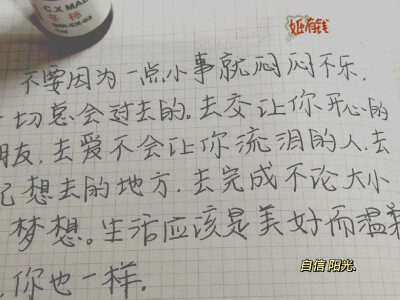 C.X MADE
冬柿
姬有钱
不要因为一点小事就闷闷不乐,
一切总会过去的。去交让你开心的
朋友,去爱不会让你流泪的人,去
想去的地方,去完成不论大小
梦想。生活应该是美好而温柔
你也一样.
自信 阳光.